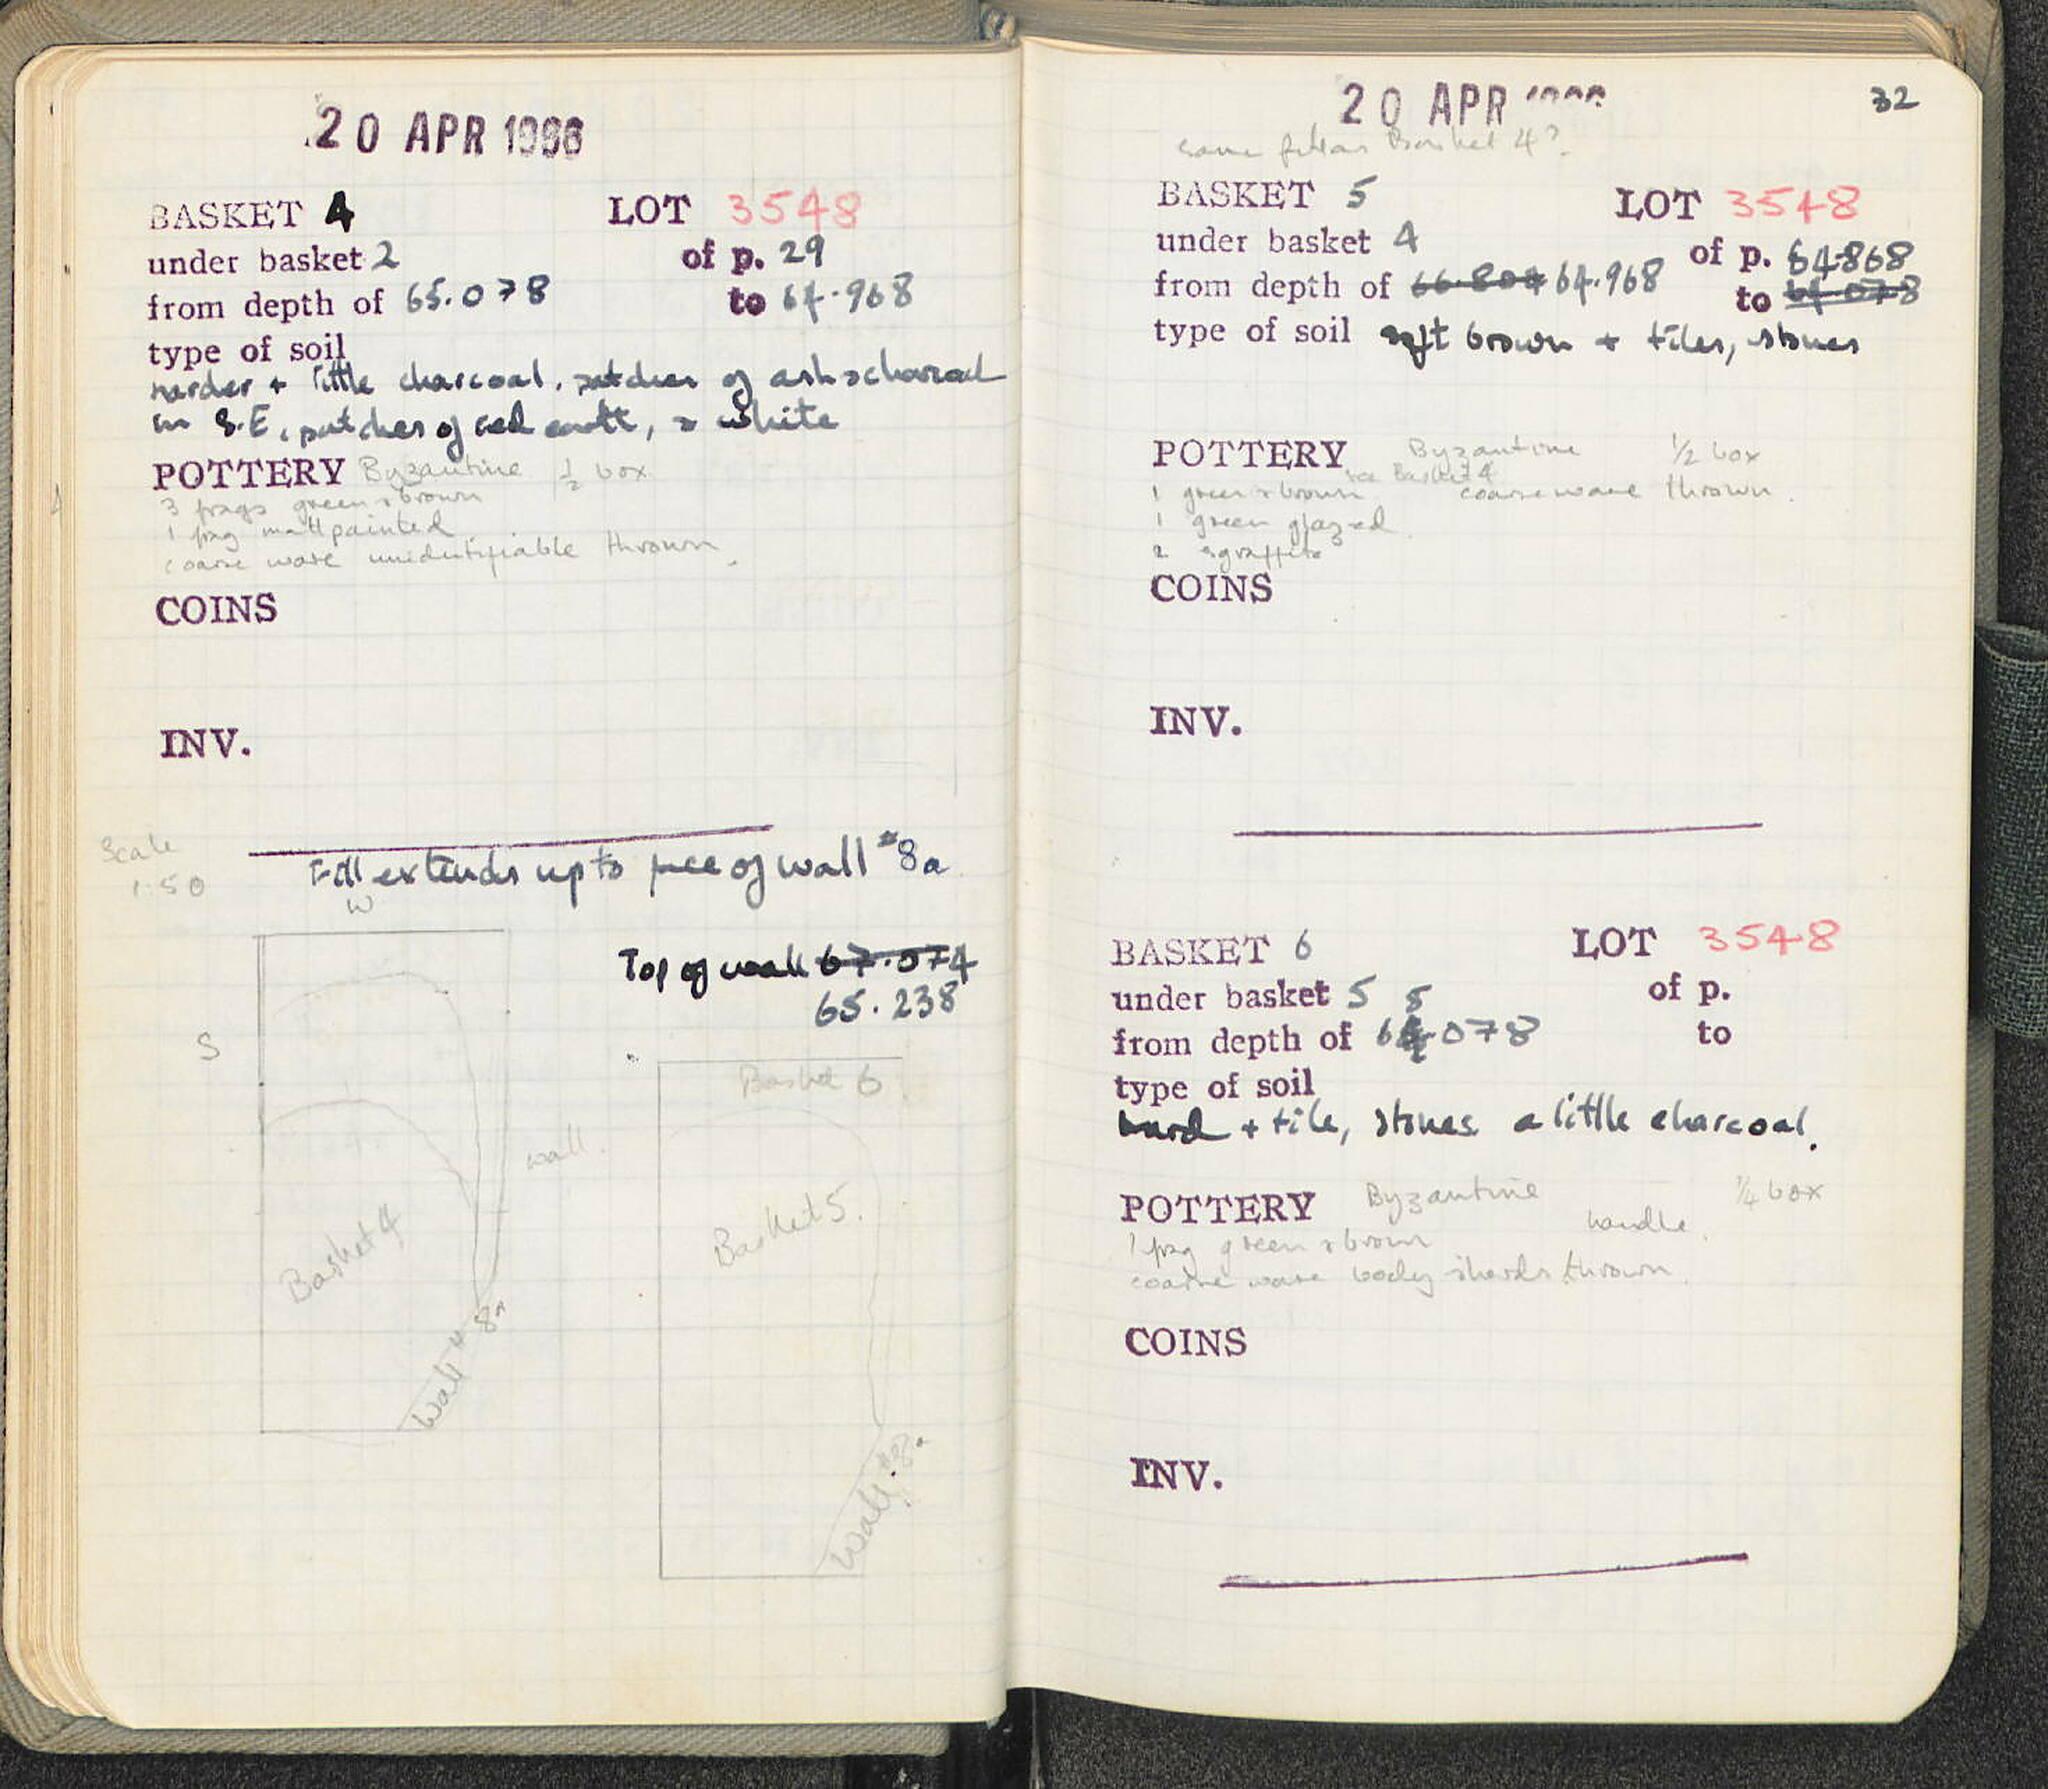 20 APR 1966
BASKET 4 LOT 3548
under basket 2 of p. 29
from depth of 65.078 to 64.968
type of soil
harder + little charcoal, patches of ash & charcoal
in S.E, patches of red earth, & white
POTTERY Byzantine 1/2 box
3 frags green & brown
1 frag matt painted
coarse ware unidentifiable thrown.
COINS
INV.
Scale
1:50
Fill extends up to face of wall #8a
W
Top of wall 67.074
65.238
S
wall.
Basket 4
Wall # 8a
Basket 6
Basket 5.
Wall #8a
32
20 APR
same fill as Basket 4?
BASKET 5 LOT 3548
under basket 4 of p. 64.868
from depth of 66.804 64.968 to 64.078
type of soil soft brown + tiles, stones
POTTERY Byzantine 1/2 box
see Basket 4
1 green & brown coarse ware thrown.
1 green glazed
2 sgraffito
COINS
INV.
BASKET 6 LOT 3548
under basket 5 of p.
from depth of 65.078 to
type of soil
hard + tile, stones a little charcoal.
POTTERY Byzantine 1/4 box
handle.
1 frag green & brown
coarse ware body sherds thrown.
COINS
INV.